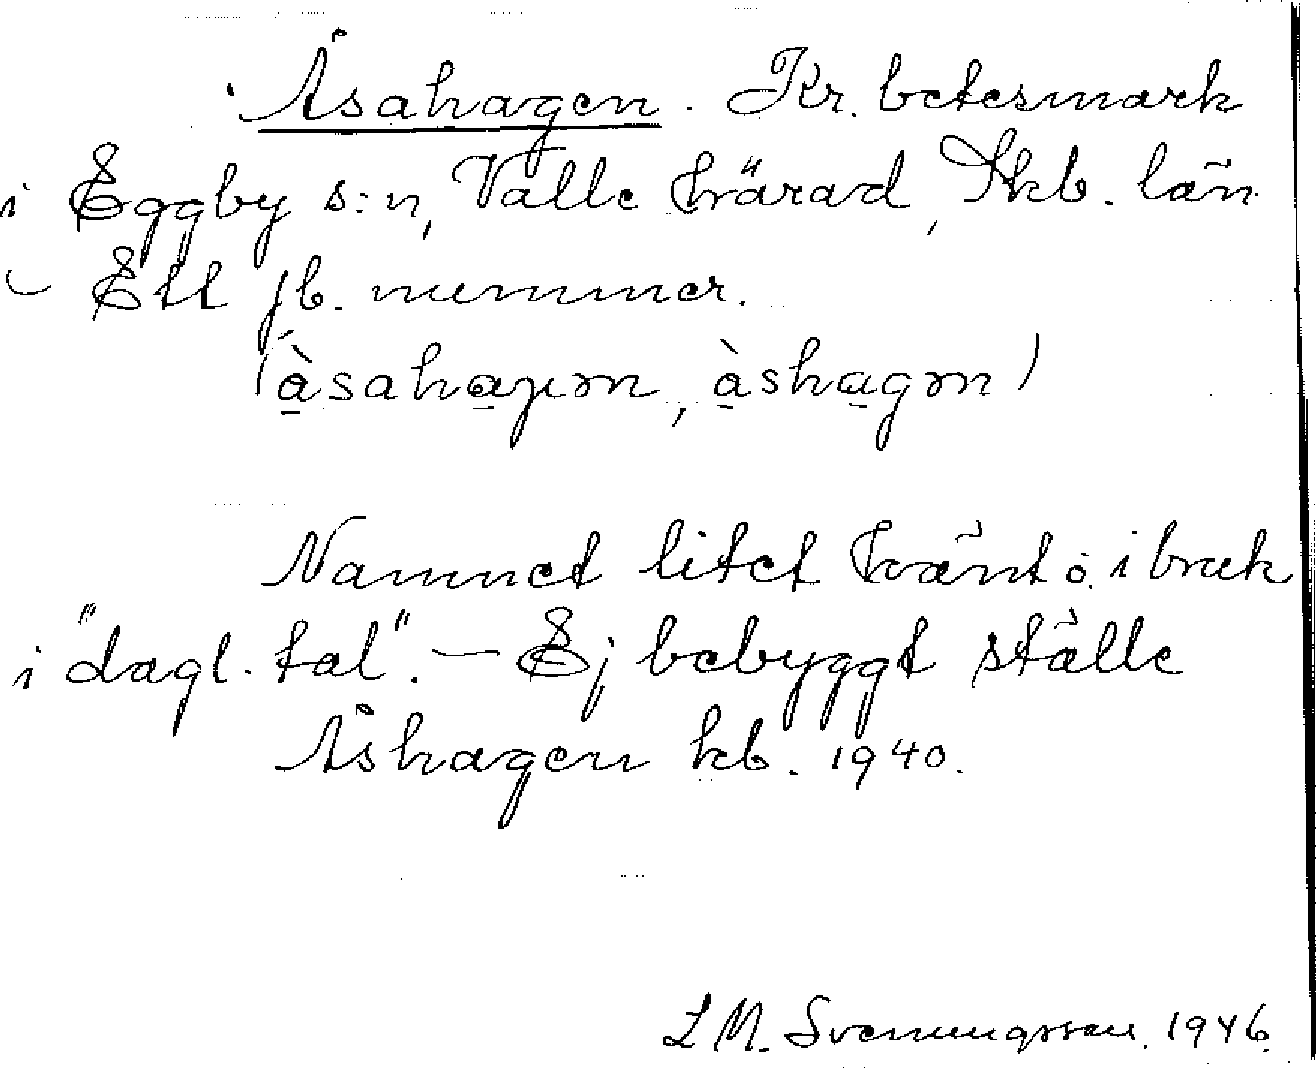 Åsahagen. Kr. betesmark
i Eggby s:n, Valle härad, Skb. län
– Ett jb. nummer.
(àsahaγən, àshagən)
Namnet litet känt o. i bruk
i "dagl. tal". — Ej bebyggt ställe
Åshagen kb. 1940.
L M. Svenungsson. 1946.